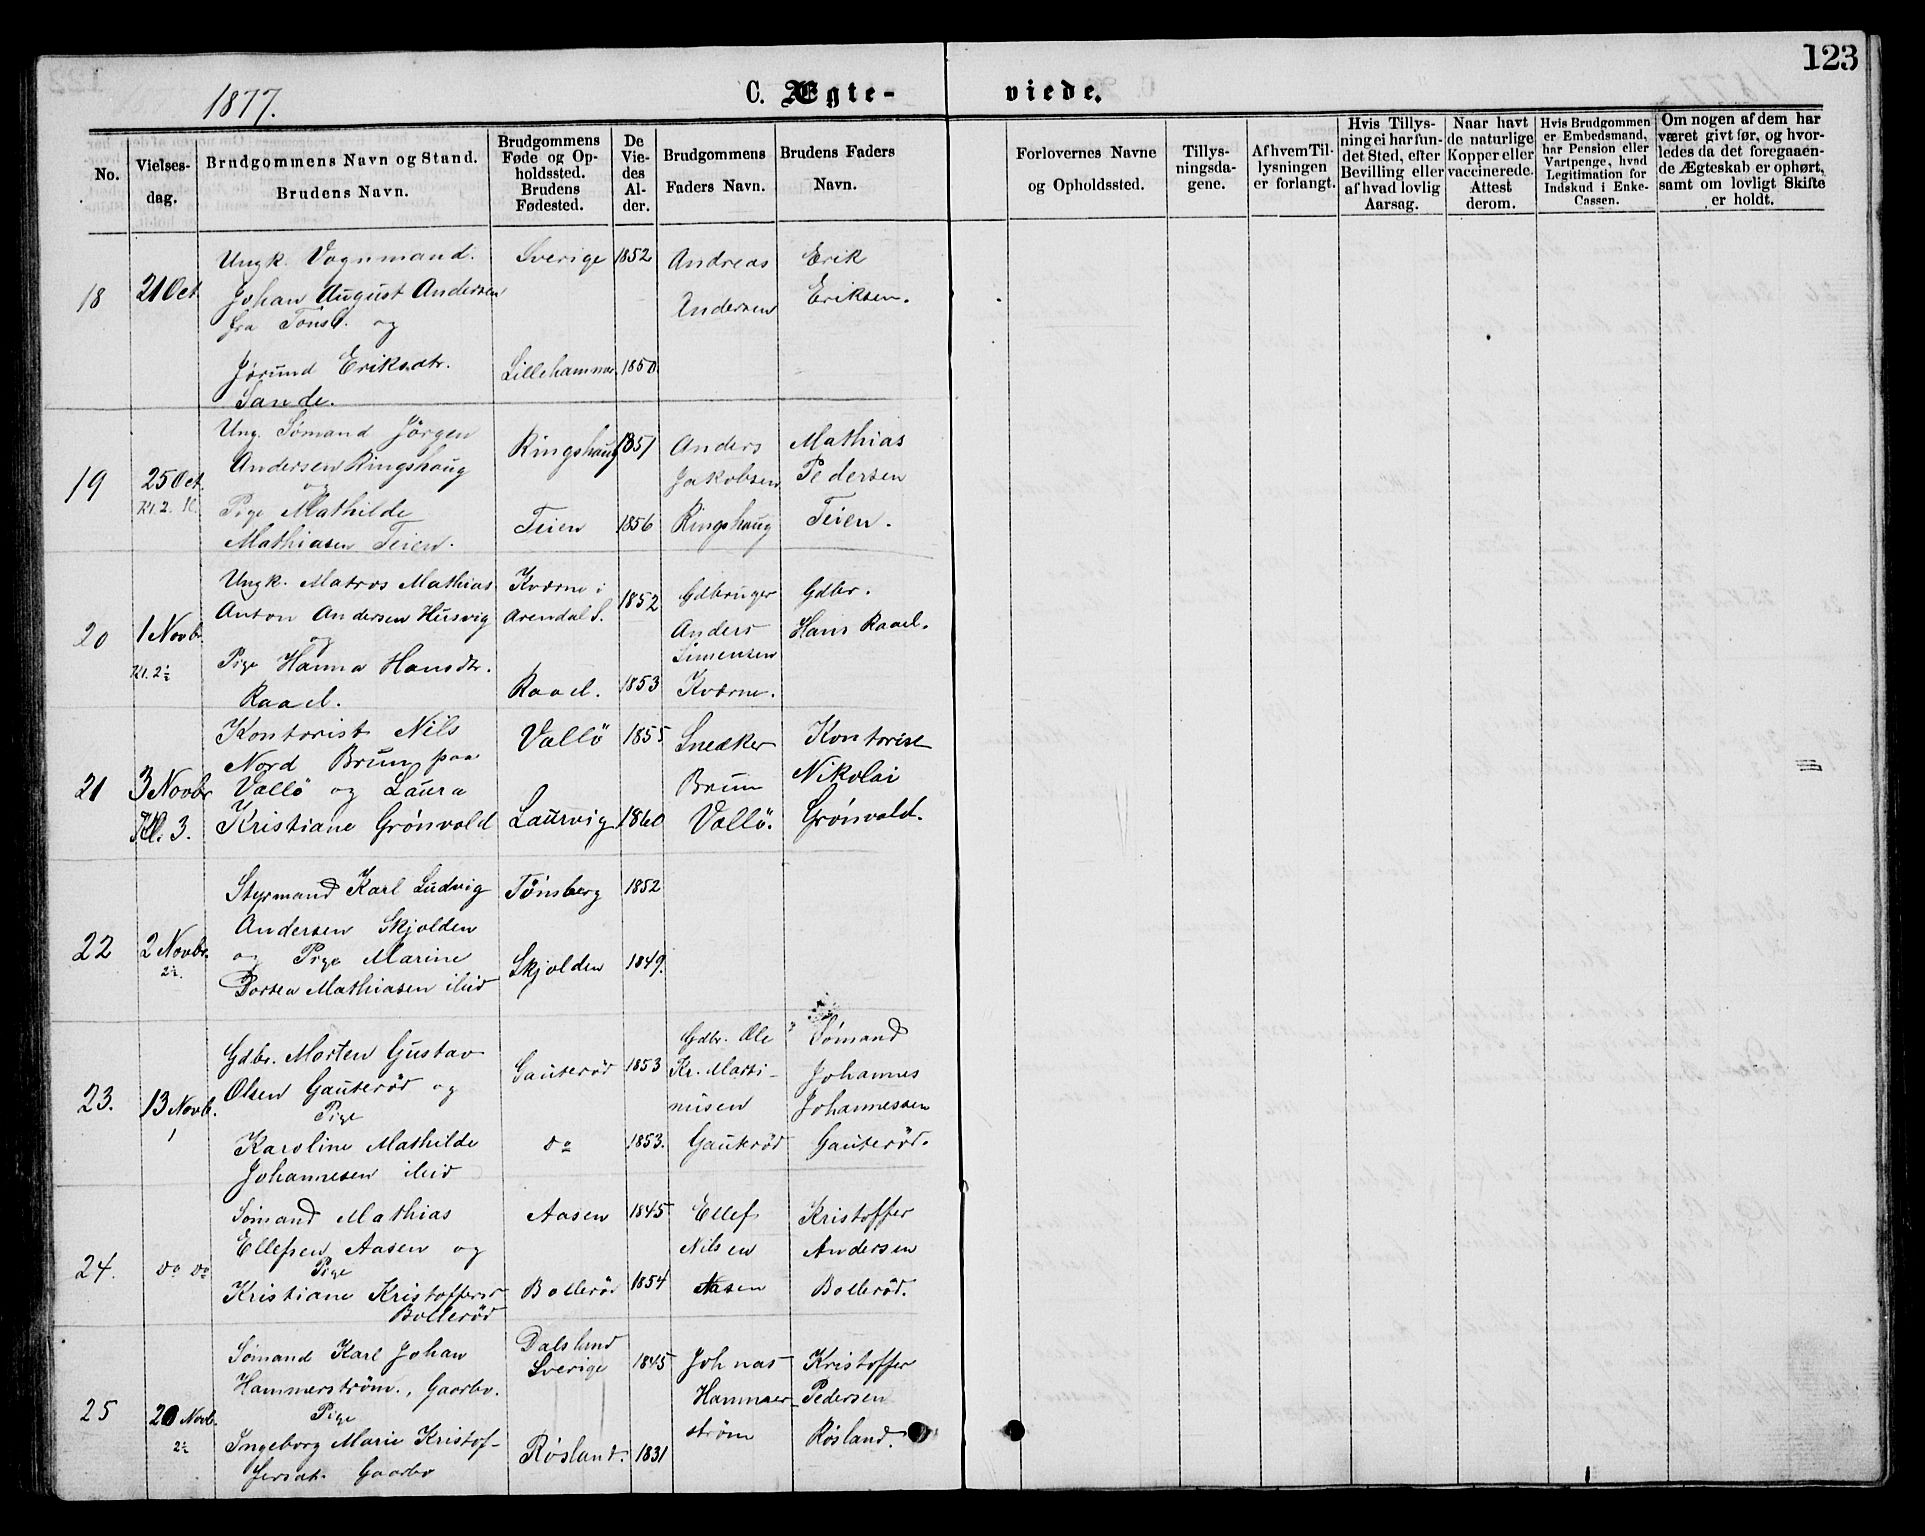 123
1877.
C. Ægte-
viede.
No.
Vielses-
dag.
Brudgommens Navn og Stand.
Brudens Navn.
Brudgommens
Føde og Op-
holdssted.
Brudens
Fødested.
De
Vie-
des
Al-
der.
Brudgommens
Faders Navn.
Brudens Faders
Navn.
Forlovernes Navne
og Opholdssted.
Tillys-
ningsda-
gene.
Af hvem Til-
lysningen
er forlangt.
Hvis Tillys-
ning ei har fun-
det Sted, efter
Bevilling eller
af hvad lovlig
Aarsag.
Naar havt
de naturlige
Kopper eller
vaccinerede.
Attest
derom.
Hvis Brudgommen
er Embedsmand,
har Pension eller
Vartpenge, hvad
Legitimation for
Indskud i Enke-
Cassen.
Om nogen af dem har
været givt før, og hvor-
ledes da det foregaaen-
de Ægteskab er ophørt,
samt om lovligt Skifte
er holdt.
18
21 Oct
Ungk. Vognmand.
Johan August Andersen
fra Tönsb. og
Jørund Eriksdtr.
Sande.
Sverige
Lillehammer
1852
1850
Andreas
Andersen
Erik
Eriksen.
19
25 Oct.
Kl. 2.
Ung. Sømand Jörgen
Andersen Ringshaug
og
Pige Mathilde
Mathiasen Teien.
Ringshaug
Teien
1851
1856
Anders
Jakobsen
Ringshaug
Mathias
Pedersen
Teien.
20
1 Novb.
Kl. 2½
Ungk. Matros Mathias
Anton Andersen Husvig
og
Pige Hanna Hansdtr.
Raael.
Kværne i
Arendal S.
Raael.
1852
1853
Gdbruger
Anders
Simensen
Kværne.
Gdbr.
Hans Raael.
21
3 Novbr
Kl. 3.
Kontorist Nils
Nord Brun paa
Vallö og Laura
Kristiane Grónvold
Vallö
Laurvig
1855
1860
Snedker
Brun
Vallö.
Kontorist
Nikolai
Grónvold.
22
2 Novbr.
2½.
Styrmand Karl Ludvig
Andersen Skjolden
og Pige Marine
Dorsea Mathiasen ibid
Tönsberg
Skjolden
1852
1849.
23.
13 Novb.
1
Gdbr. Morten Gustav
Olsen Gauterød og
Pige
Karoline Mathilde
Johannesen ibid
Gauterød
do
1853
1853.
Gdbr. Ole
Kr. Marti-
nusen
Gauterød
Sømand
Johannes
Johannessen
Gauterød.
24.
do do
Sømand Mathias
Ellefsen Aasen og
Pige
Kristiane Kristoffersd
Bollerød
Aasen
Bollerød
1845
1854
Ellef
Nilsen
Aasen
Kristoffer
Andersen
Bollerød.
25
20 Novb.
2½
Sømand Karl Johan
Hammerström, Gaarbo.
Pige
Ingeborg Marie Kristof-
fersdt. Gaarbo
Dalsland
Sverige
Røsland.
1845
1831
Johnas
Hammer-
ström
Kristoffer
Pedersen
Røsland.